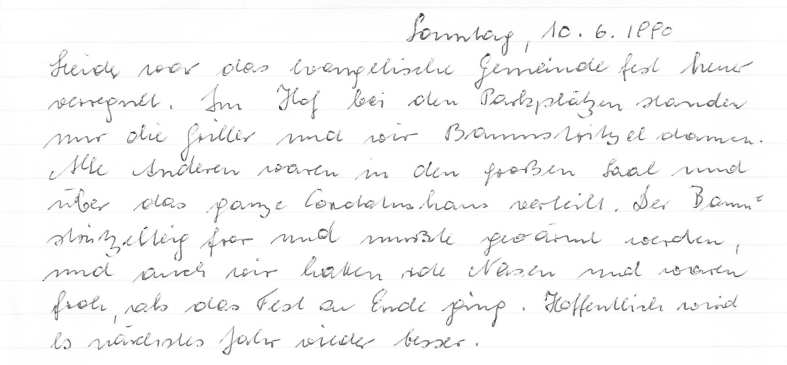 Sonntag, 10.6.1990
Leider war das evangelische Gemeindefest heuer
verregnet. Im Hof bei den Parkplätzen standen
nur die Griller und wir Baumstritzeldamen.
Alle Anderen waren in den großen Saal und
über das ganze Cordatushaus verteilt. Der Baum=
stritzelteig fror und mußte gewärmt werden,
und auch wir hatten rote Nasen und waren
froh, als das Fest zu Ende ging. Hoffentlich wird
es nächstes Jahr wieder besser.